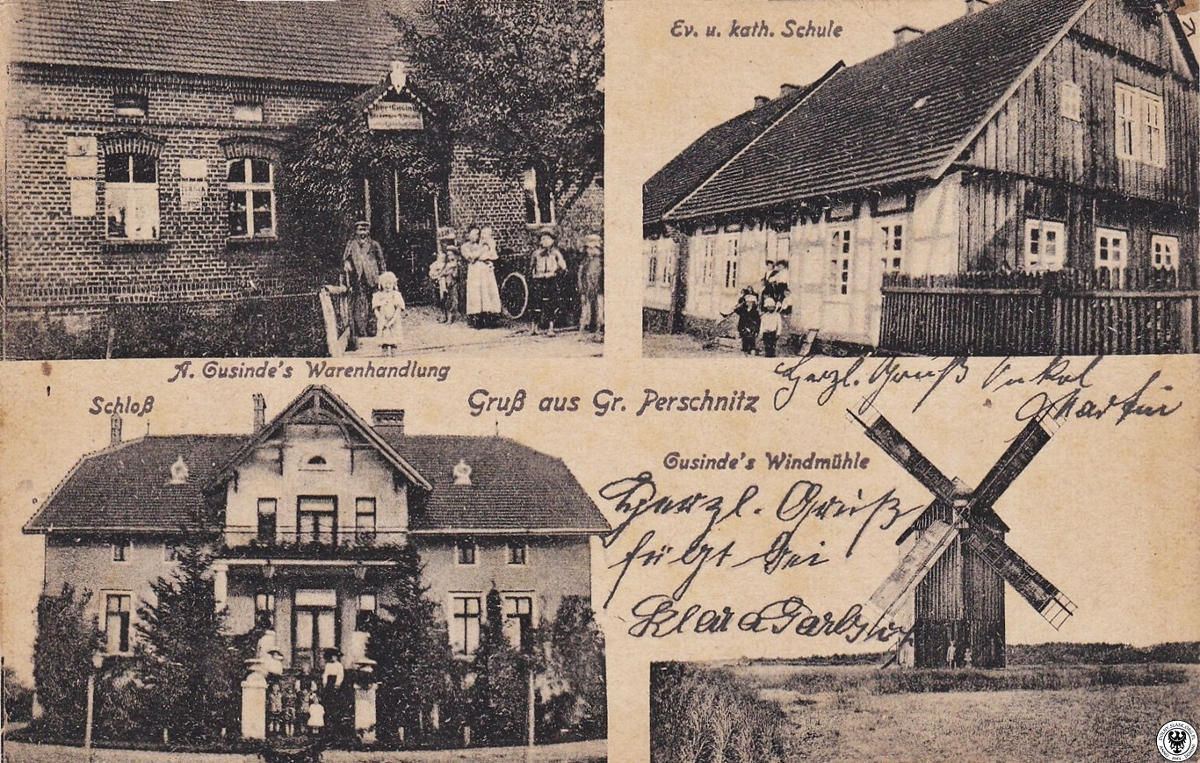 Ev. u. kath. Schule
A. Gusinde's Warenhandlung
Schloß
Gruß aus Gr. Perschnitz
Herzl. Gruß Onkel
Martin
Gusinde's Windmühle
Herzl. Gruß
fügt bei
Klara